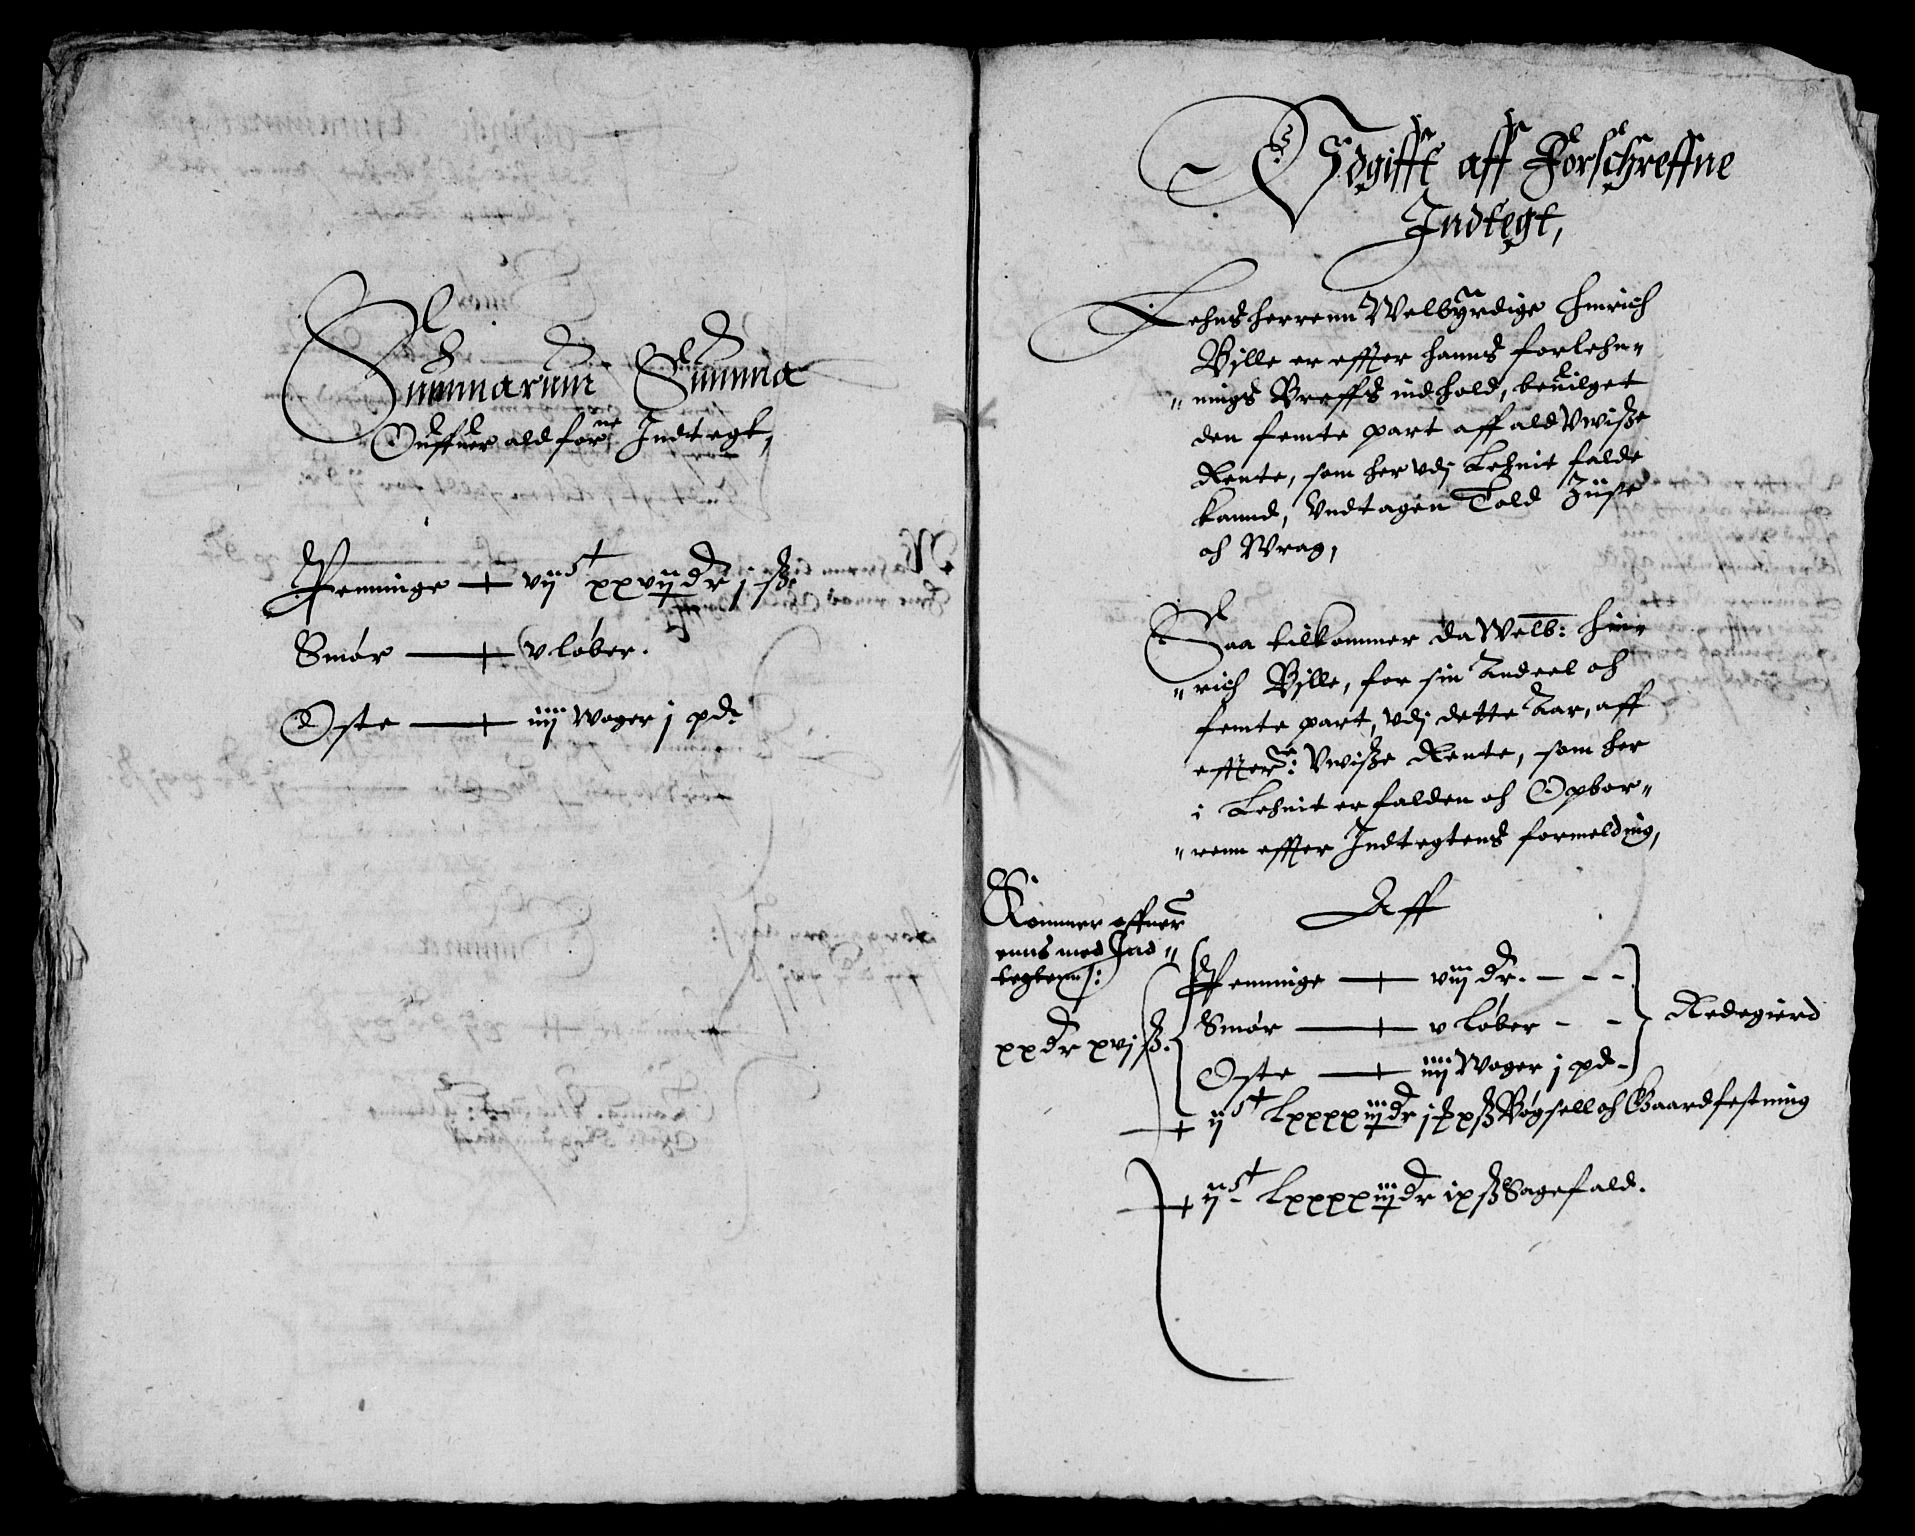 Summarum Summa
Ouffuer ald for:ne Indtegt,
Penninge — vij c xxvij dr j ß
Smør — v løber.
Oste — iiij Woger j pd:
Vdgifft aff Forschreffne
Indtegt,
Lehnsherrenn Welbÿrdige Hinrich
Bille er effter hanns forlehn-
"nings Breffs indhold, beuilget
den femte part aff ald Vwiße
Rente, som her vdj Lehnit falde
kannd, Vndtagen Told Ziise
och Wrag,
Saa tilkommer da Welb: Hin-
"rich Bille, for sin Andeel och
femte part, vdj dette Aar, aff
effter:ne Vwiße Rente, som her
i Lehnit er falden och Opbor-
"renn effter Indtegtens formelding,
Aff
Kommer offuer
enns med Ind-
tegten /:
xx dr xvj ß.
Penninge — viij dr. - - -
Smør — v løber - -
Oste — iiij Woger j pd -
Redegierd
ij c Lxxxxiij dr j ß Bøgsell och Gaardfestning
ij c Lxxxxiij dr ix ß Sagefald.